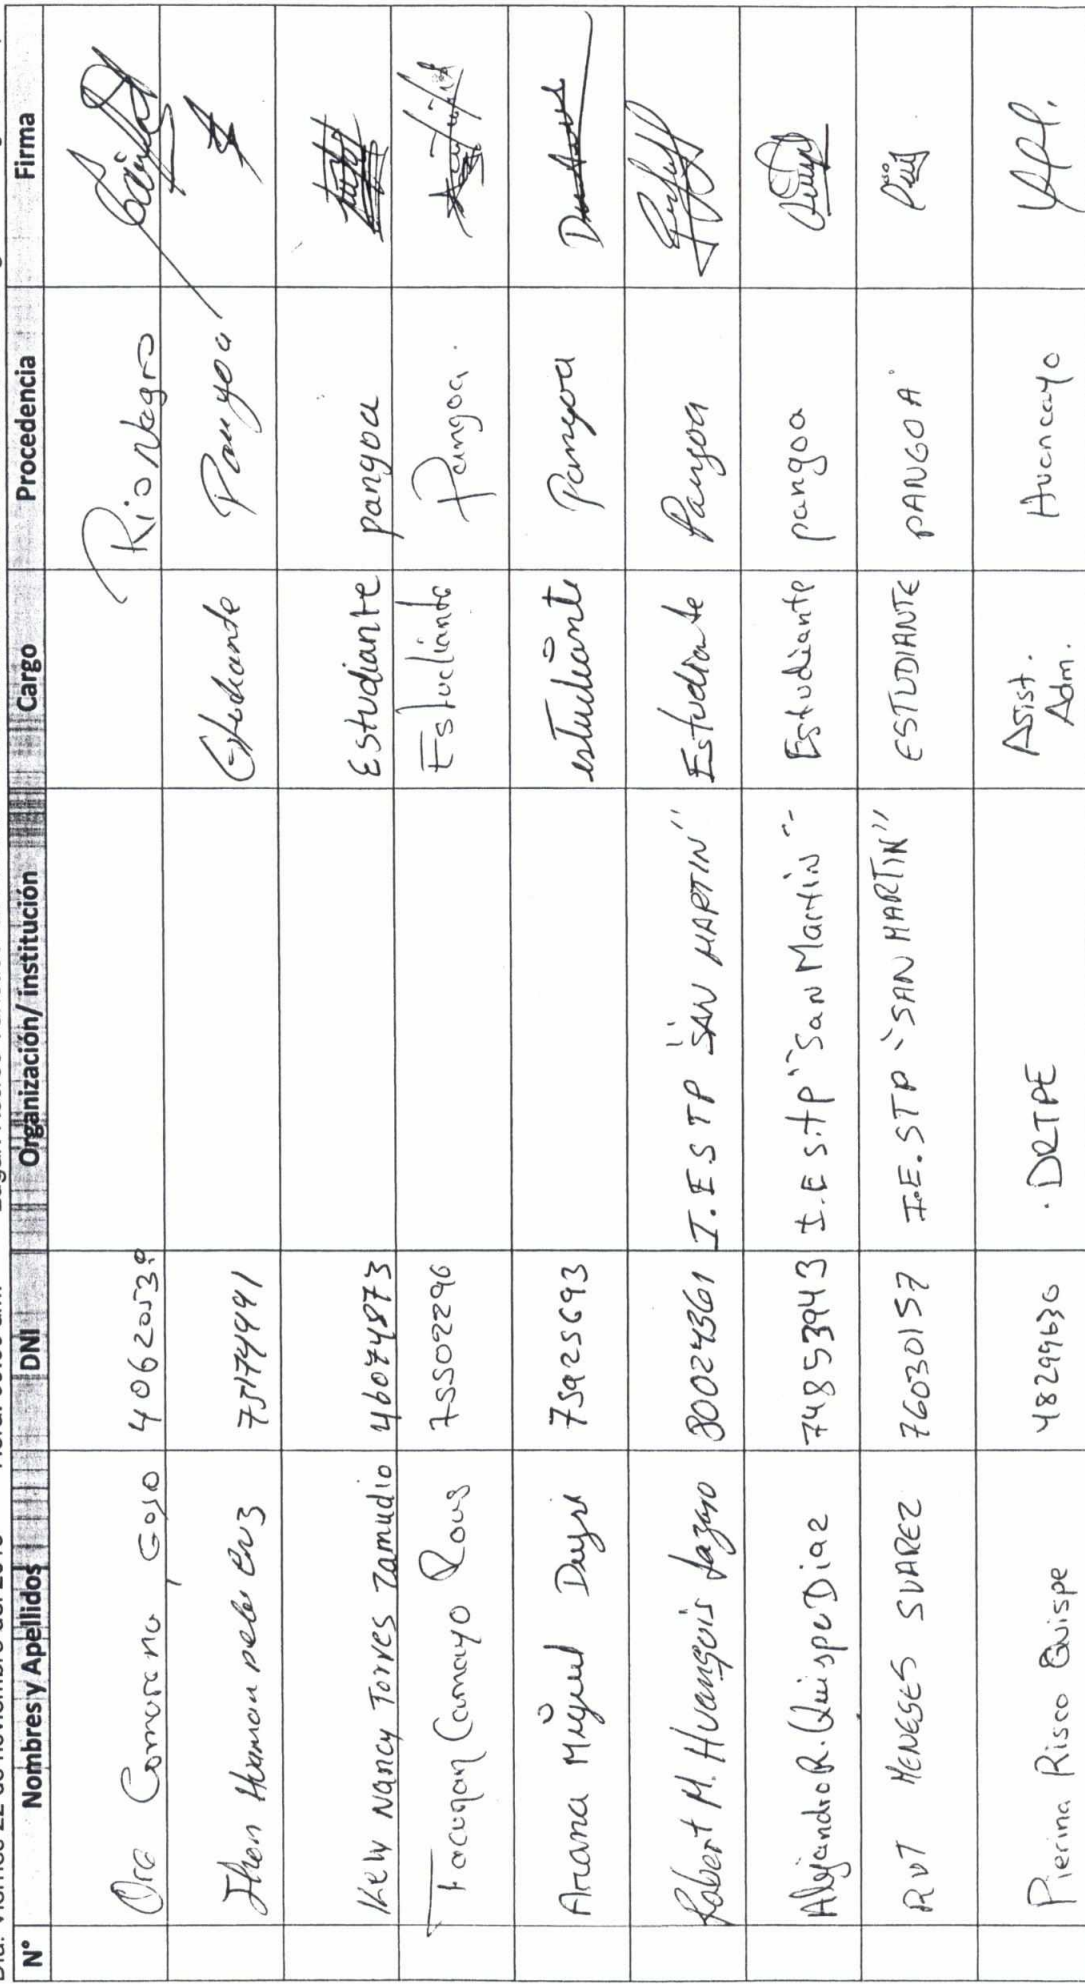 N° Nombres y Apellidos DNI Organización/ institución Cargo Procedencia Firma
Ore Camarena, Goyo Rio Negro
75174991 Pangoa
Kely Nancy Torres Zamudio 46074873 Estudiante pangoa
Camayo 75502296 Estudiante Pangoa.
Arana Miguel Deysi 75925693 estudiante Pangoa
Robert M. Huanquis Lazaro 80024361 I.E S TP "SAN MARTIN" Estudiante Pangoa
Alejandro R. Quispe Diaz 74853943 I.E S.tp "San Martin" Estudiante pangoa
RUT MENESES SUAREZ 76030157 I.E.STP "SAN MARTIN" ESTUDIANTE PANGOA
Pierina Risco Quispe 48299630 . DRTPE Asist. Adm. Huancayo